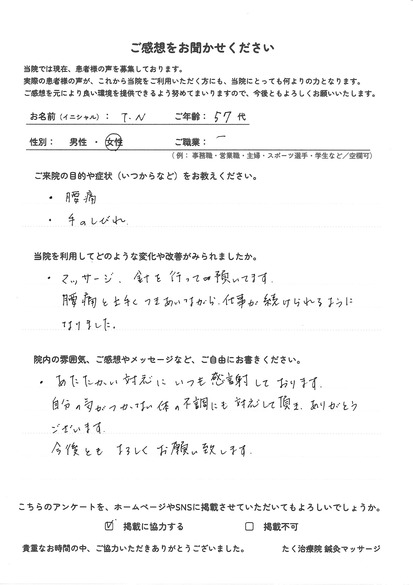 ご感想をお聞かせください
当院では現在、患者様の声を募集しております。
実際の患者様の声が、これから当院をご利用いただく方にも、当院にとっても何よりの力となります。
ご感想を元により良い環境を提供できるよう努めてまいりますので、今後ともよろしくお願いいたします。
お名前（イニシャル）： T.N ご年齢： 57 代
性別： 男性 ・ 女性 ご職業： ー
（例： 事務職・営業職・主婦・スポーツ選手・学生など／空欄可）
ご来院の目的や症状（いつからなど）をお教えください。
・ 腰痛
・ 手のしびれ.
当院を利用してどのような変化や改善がみられましたか。
・ マッサージ、針を行って頂いてます.
腰痛と上手くつきあいながら、仕事が続けられるように
なりました。
院内の雰囲気、ご感想やメッセージなど、ご自由にお書きください。
・ あたたかい対応にいつも感謝しております.
自分の気がつかない体の不調にも対応して頂き、ありがとう
ございます.
今後とも よろしくお願い致します.
こちらのアンケートを、ホームページやSNSに掲載させていただいてもよろしいでしょうか。
☑ 掲載に協力する ☐ 掲載不可
貴重なお時間の中、ご協力いただきありがとうございました。 たく治療院 鍼灸マッサージ